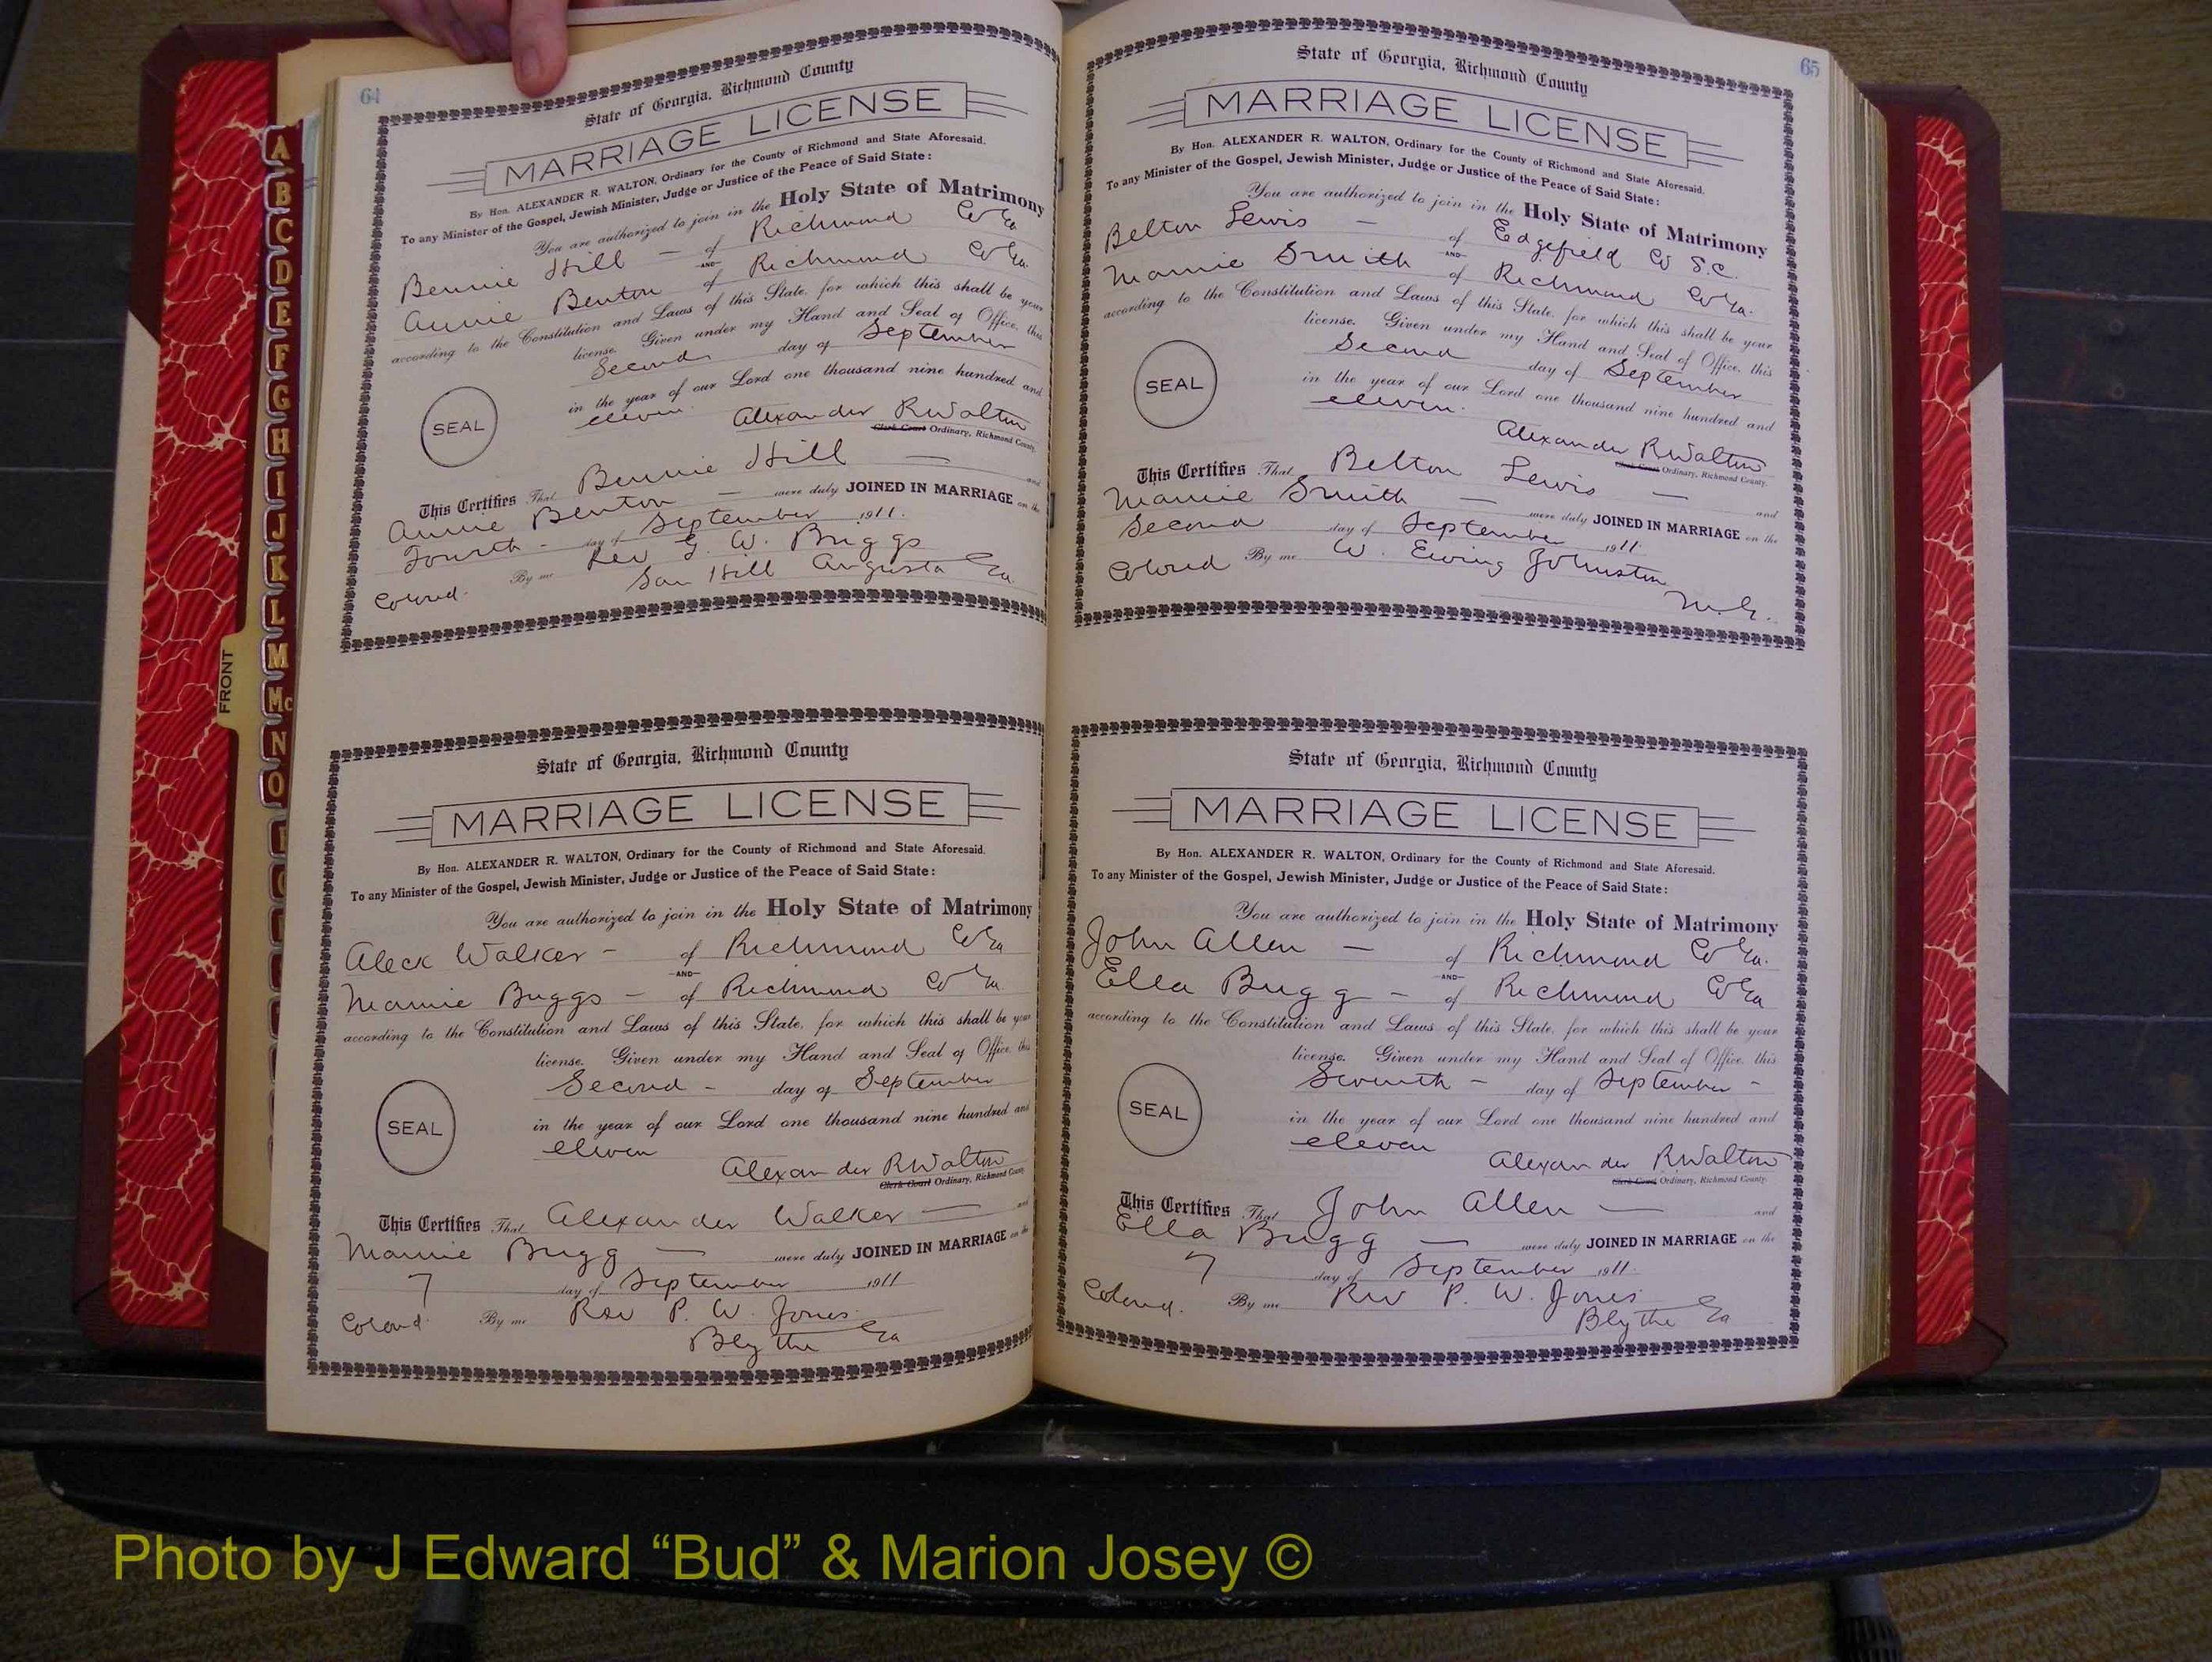 64
State of Georgia, Richmond County
MARRIAGE LICENSE
By Hon. ALEXANDER R. WALTON, Ordinary for the County of Richmond and State Aforesaid.
To any Minister of the Gospel, Jewish Minister, Judge or Justice of the Peace of Said State:
You are authorized to join in the Holy State of Matrimony
Bennie Hill — of Richmond Co Ga
AND
Annie Benton of Richmond Co Ga.
according to the Constitution and Laws of this State, for which this shall be your
license. Given under my Hand and Seal of Office, this
Second day of September
in the year of our Lord one thousand nine hundred and
eleven.
SEAL
Alexander R Walton
Clerk Court Ordinary, Richmond County.
This Certifies That Bennie Hill — and
Annie Benton — were duly JOINED IN MARRIAGE on the
Fourth - day of September 1911.
By me Rev G. W. Briggs
Colored. San Hill Augusta Ga.
State of Georgia, Richmond County
MARRIAGE LICENSE
By Hon. ALEXANDER R. WALTON, Ordinary for the County of Richmond and State Aforesaid.
To any Minister of the Gospel, Jewish Minister, Judge or Justice of the Peace of Said State:
You are authorized to join in the Holy State of Matrimony
Aleck Walker - of Richmond Co Ga
—AND—
Mamie Buggs - of Richmond Co Ga
according to the Constitution and Laws of this State, for which this shall be your
license. Given under my Hand and Seal of Office, this
Second - day of September
in the year of our Lord one thousand nine hundred and
eleven
SEAL
Alexander R Walton
Clerk Court Ordinary, Richmond County
This Certifies That Alexander Walker — and
Mamie Bugg — were duly JOINED IN MARRIAGE on the
7 day of September 1911
Colored By me Rev P. W. Jones.
Blythe Ga
65
State of Georgia, Richmond County
MARRIAGE LICENSE
By Hon. ALEXANDER R. WALTON, Ordinary for the County of Richmond and State Aforesaid.
To any Minister of the Gospel, Jewish Minister, Judge or Justice of the Peace of Said State:
You are authorized to join in the Holy State of Matrimony
Belton Lewis — of Edgefield Co S.C.
—AND—
Mamie Smith of Richmond Co Ga.
according to the Constitution and Laws of this State, for which this shall be your
license. Given under my Hand and Seal of Office, this
Second day of September
in the year of our Lord one thousand nine hundred and
eleven.
SEAL
Alexander R Walton
Clerk Court Ordinary, Richmond County.
This Certifies That Belton Lewis — and
Mamie Smith — were duly JOINED IN MARRIAGE on the
Second day of September 1911.
Colored By me W. Ewing Johnston
M.G.
State of Georgia, Richmond County
MARRIAGE LICENSE
By Hon. ALEXANDER R. WALTON, Ordinary for the County of Richmond and State Aforesaid.
To any Minister of the Gospel, Jewish Minister, Judge or Justice of the Peace of Said State:
You are authorized to join in the Holy State of Matrimony
John Allen — of Richmond Co Ga.
—AND—
Ella Bugg - of Richmond Co Ga
according to the Constitution and Laws of this State, for which this shall be your
license. Given under my Hand and Seal of Office, this
Seventh - day of September -
in the year of our Lord one thousand nine hundred and
eleven
SEAL
Alexander R Walton
Clerk Court Ordinary, Richmond County.
This Certifies That John Allen — and
Ella Bugg — were duly JOINED IN MARRIAGE on the
7 day of September 1911.
Colored. By me Rev P. W. Jones
Blythe Ga
FRONT
A
B
C
D
E
F
G
H
I
J
K
L
M
Mc
N
O
Photo by J Edward “Bud” & Marion Josey ©